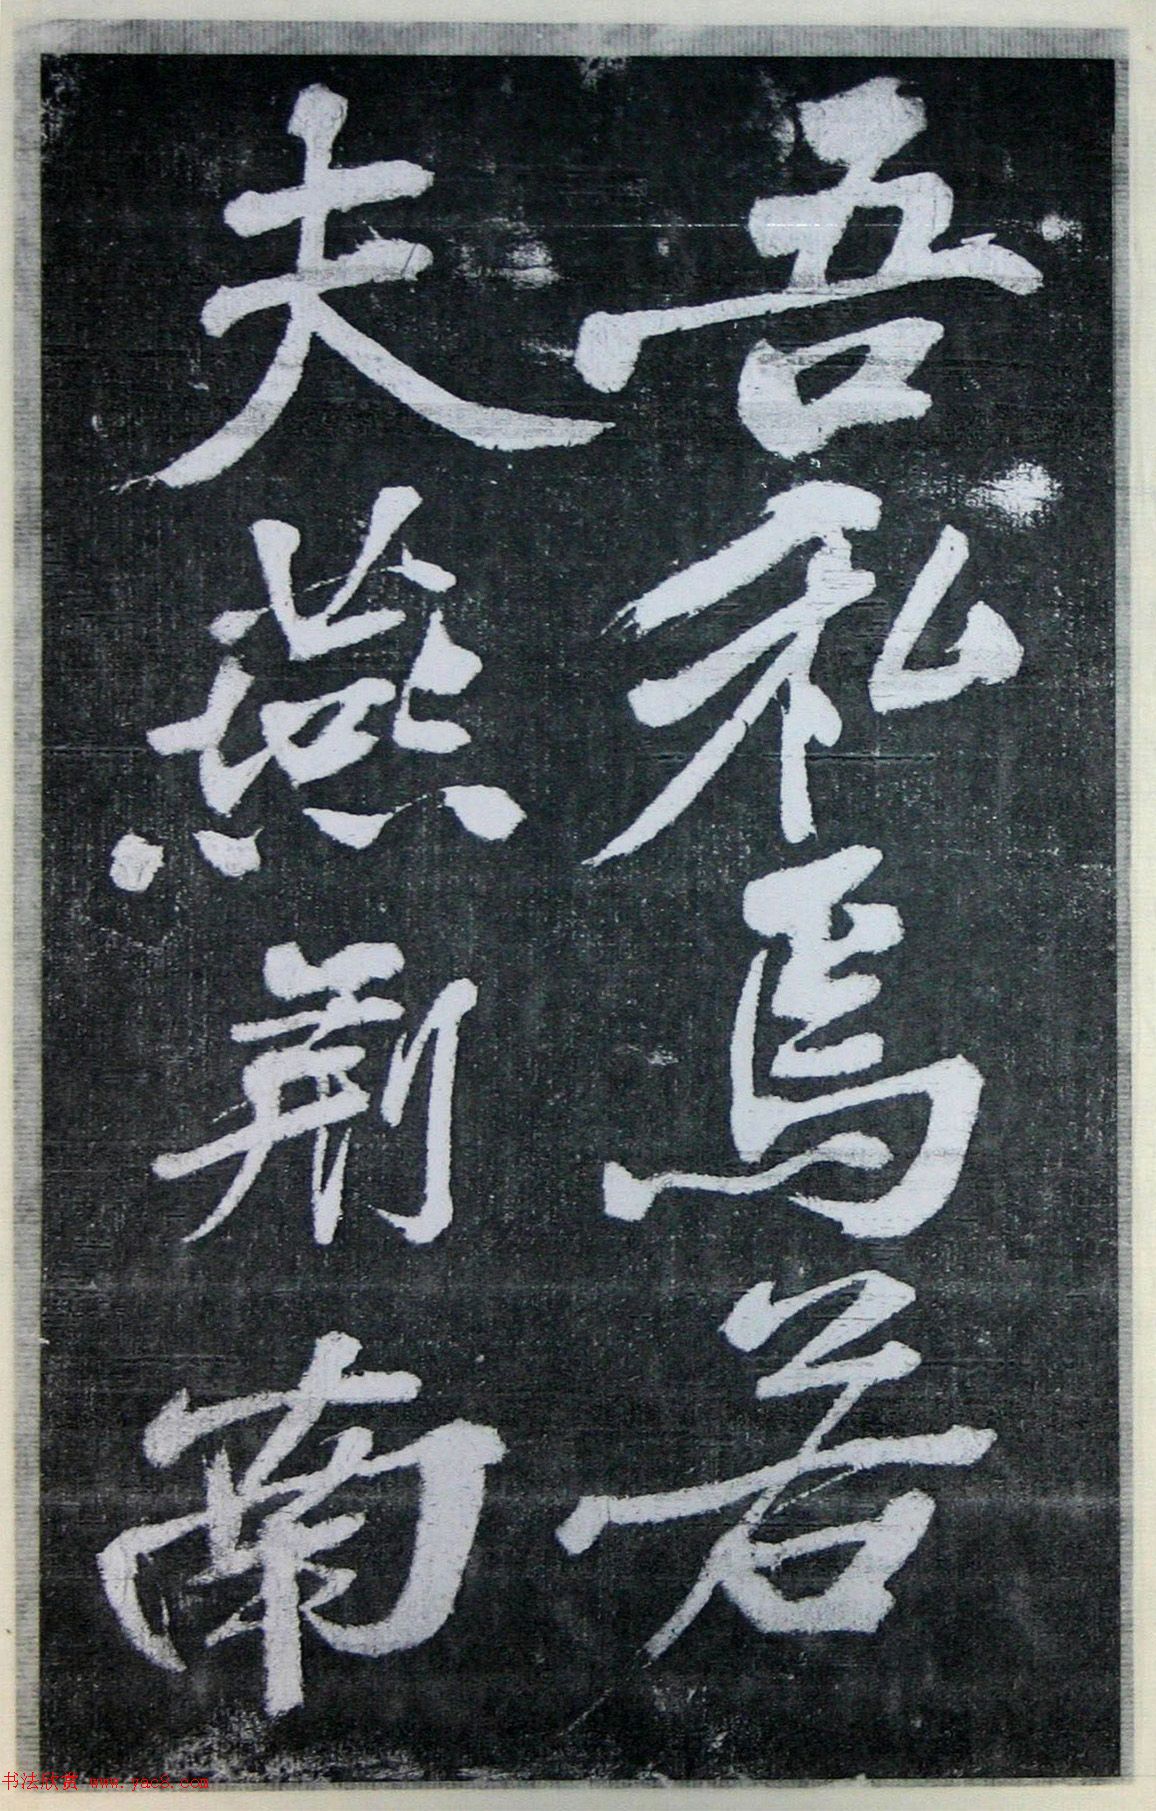 吾私焉若
夫燕荊南
书法欣赏 www.yac8.com